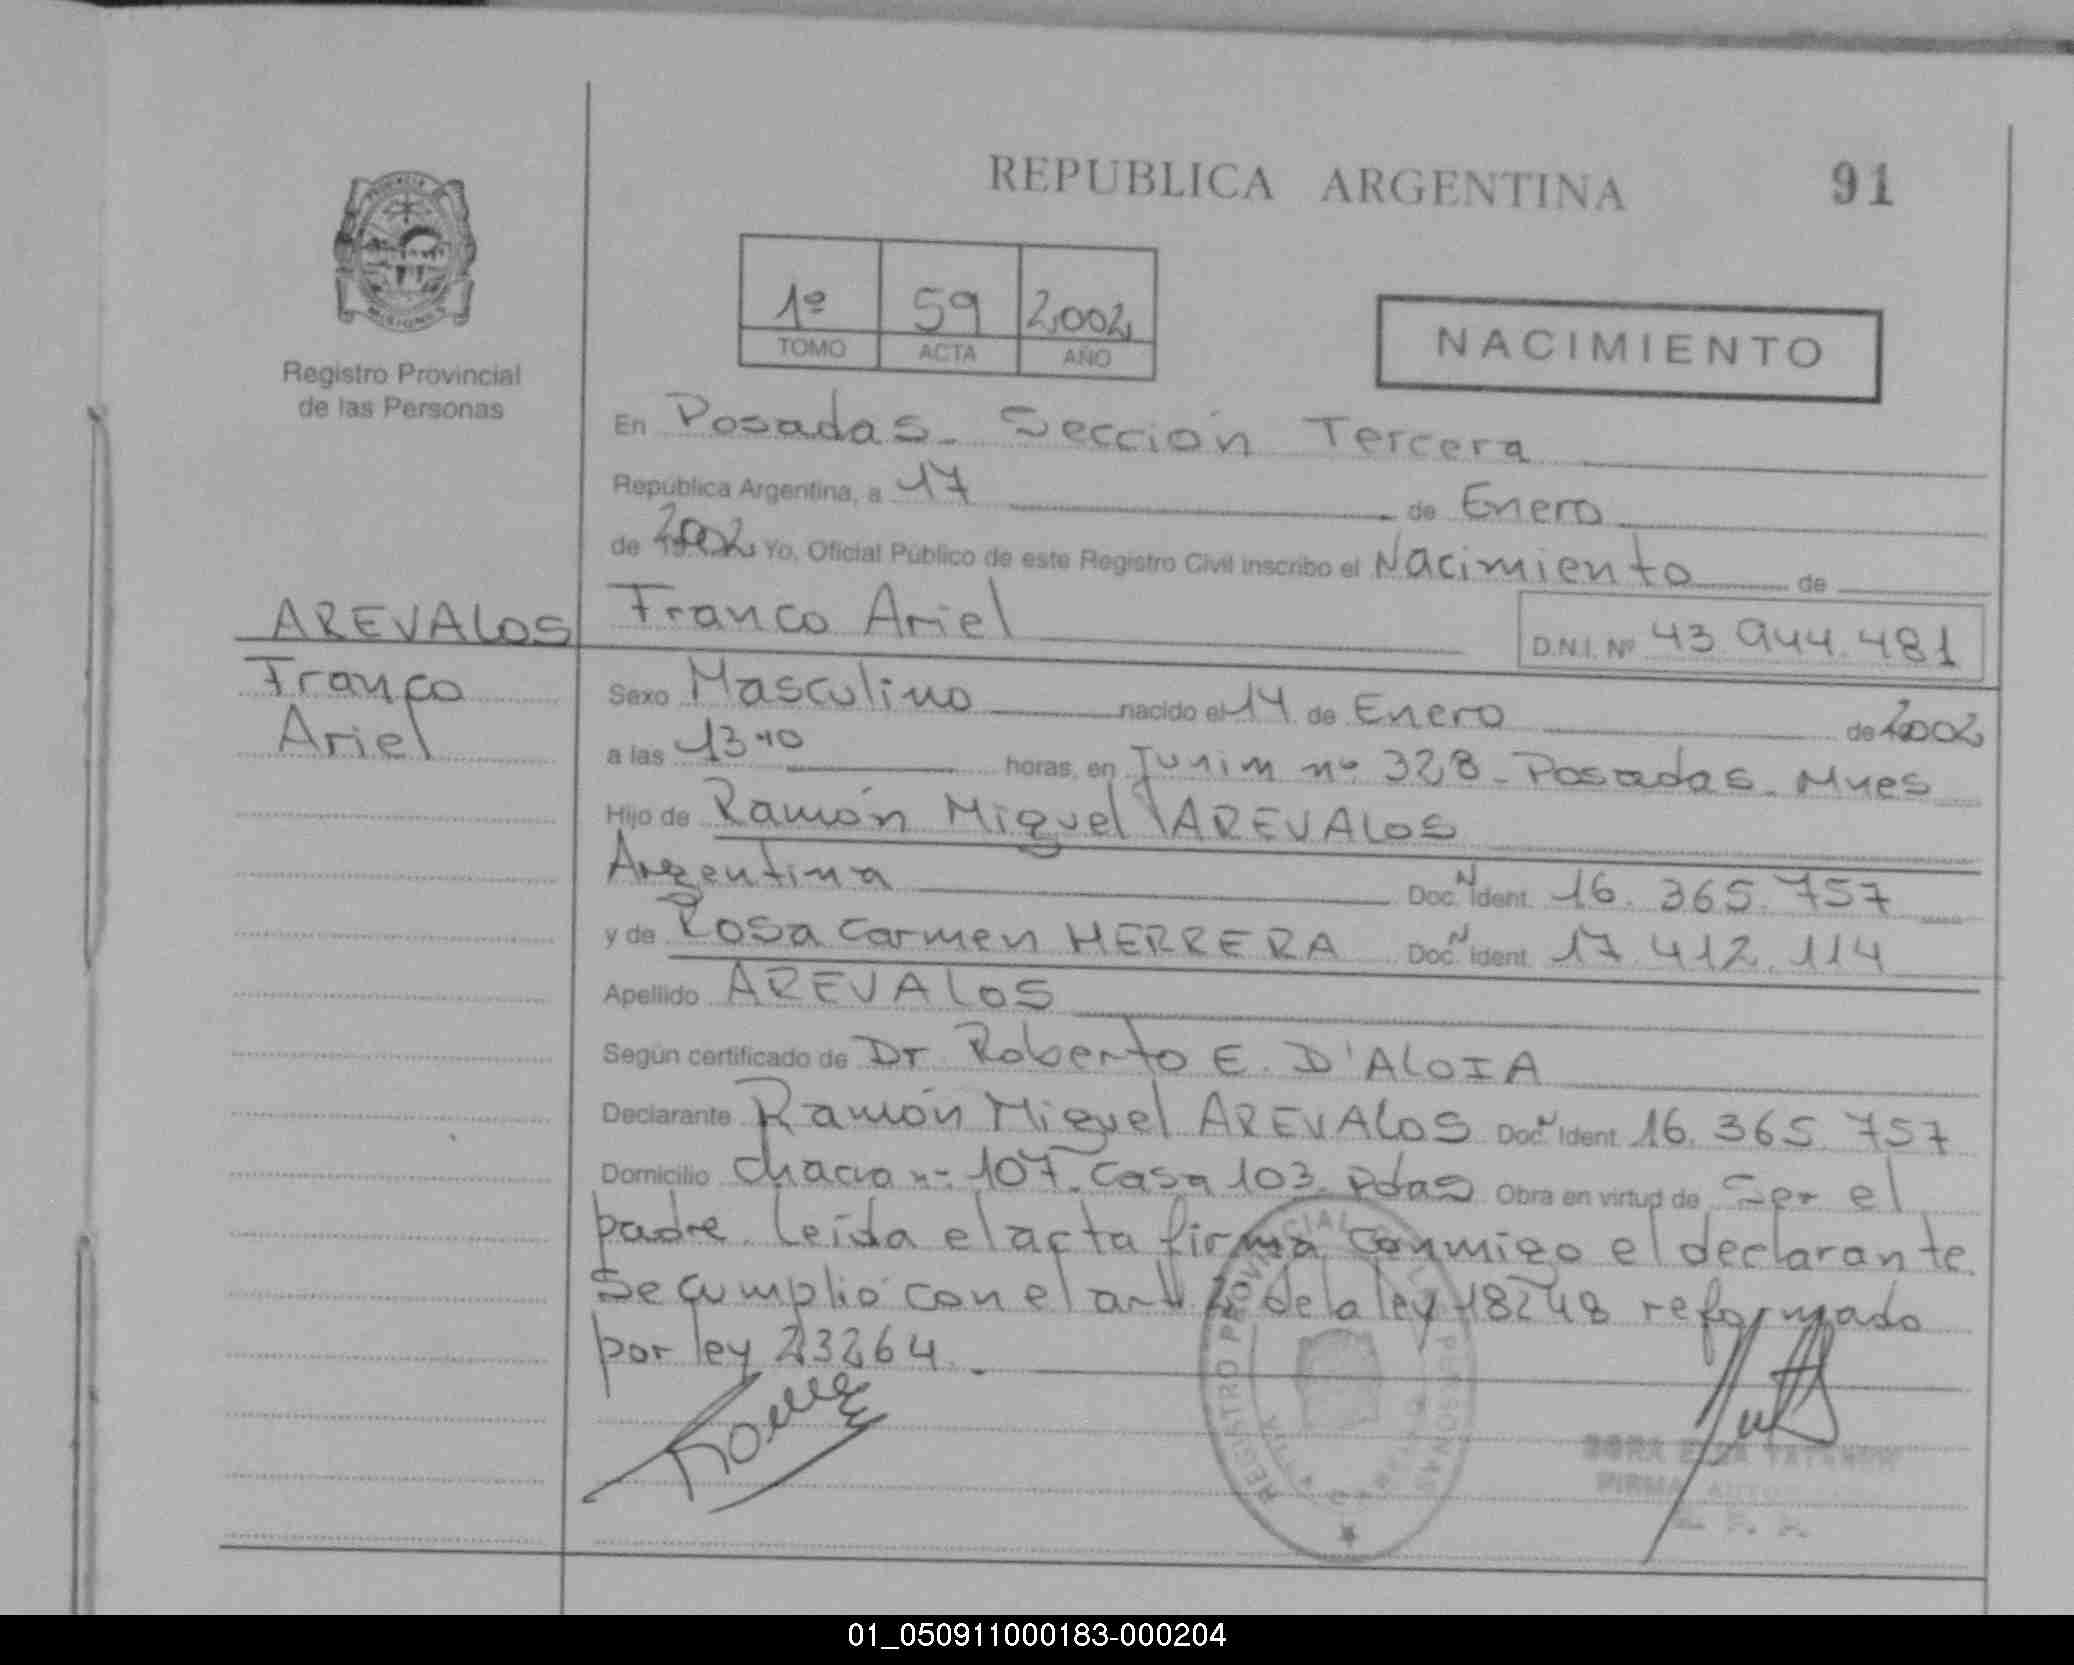 REPUBLICA ARGENTINA 91
PROVINCIA
MISIONES
Registro Provincial
de las Personas
1º 59 2,002
TOMO ACTA AÑO
NACIMIENTO
En Posadas. Sección Tercera
República Argentina, a 17 de Enero
de 2002 Yo, Oficial Público de este Registro Civil inscribo el Nacimiento de
AREVALOS Franco Ariel D.N.I. Nº 43.944.481
Franco
Ariel
Sexo Masculino nacido el 14 de Enero de 2002
a las 13:40 horas, en Junim nº 328 - Posadas - Mnes
Hijo de Ramón Miguel AREVALOS
Argentina Doc. N Ident. 16.365.757
y de Rosa Carmen HERRERA Doc. N Ident. 17.412.114
Apellido AREVALOS
Según certificado de Dr. Roberto E. D'ALOIA
Declarante Ramón Miguel AREVALOS Doc. N Ident. 16.365.757
Domicilio chacra nº 107. Casa 103. Pdas Obra en virtud de Ser el
padre. Leída el acta firma conmigo el declarante.
Se cumplió con el art 2 de la ley 18248 reformado
por ley 23264.
REGISTRO PROVINCIAL DE LAS PERSONAS
FIRMA
01_050911000183-000204